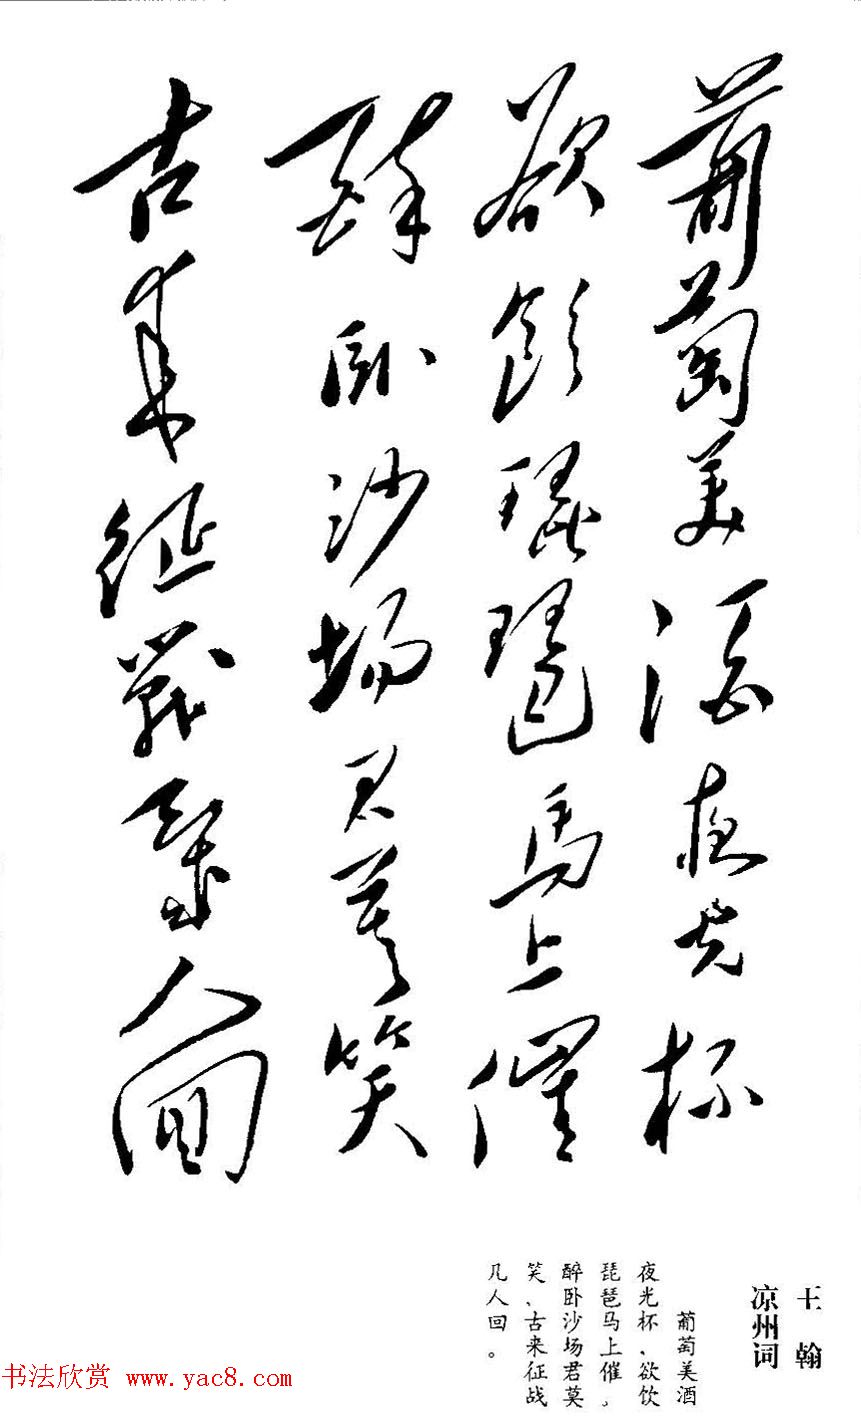 葡萄美酒夜光杯
欲饮琵琶马上催
醉卧沙场君莫笑
古来征战几人回
王翰
凉州词
葡萄美酒
夜光杯、欲饮
琵琶马上催。
醉卧沙场君莫
笑、古来征战
几人回。
书法欣赏 www.yac8.com